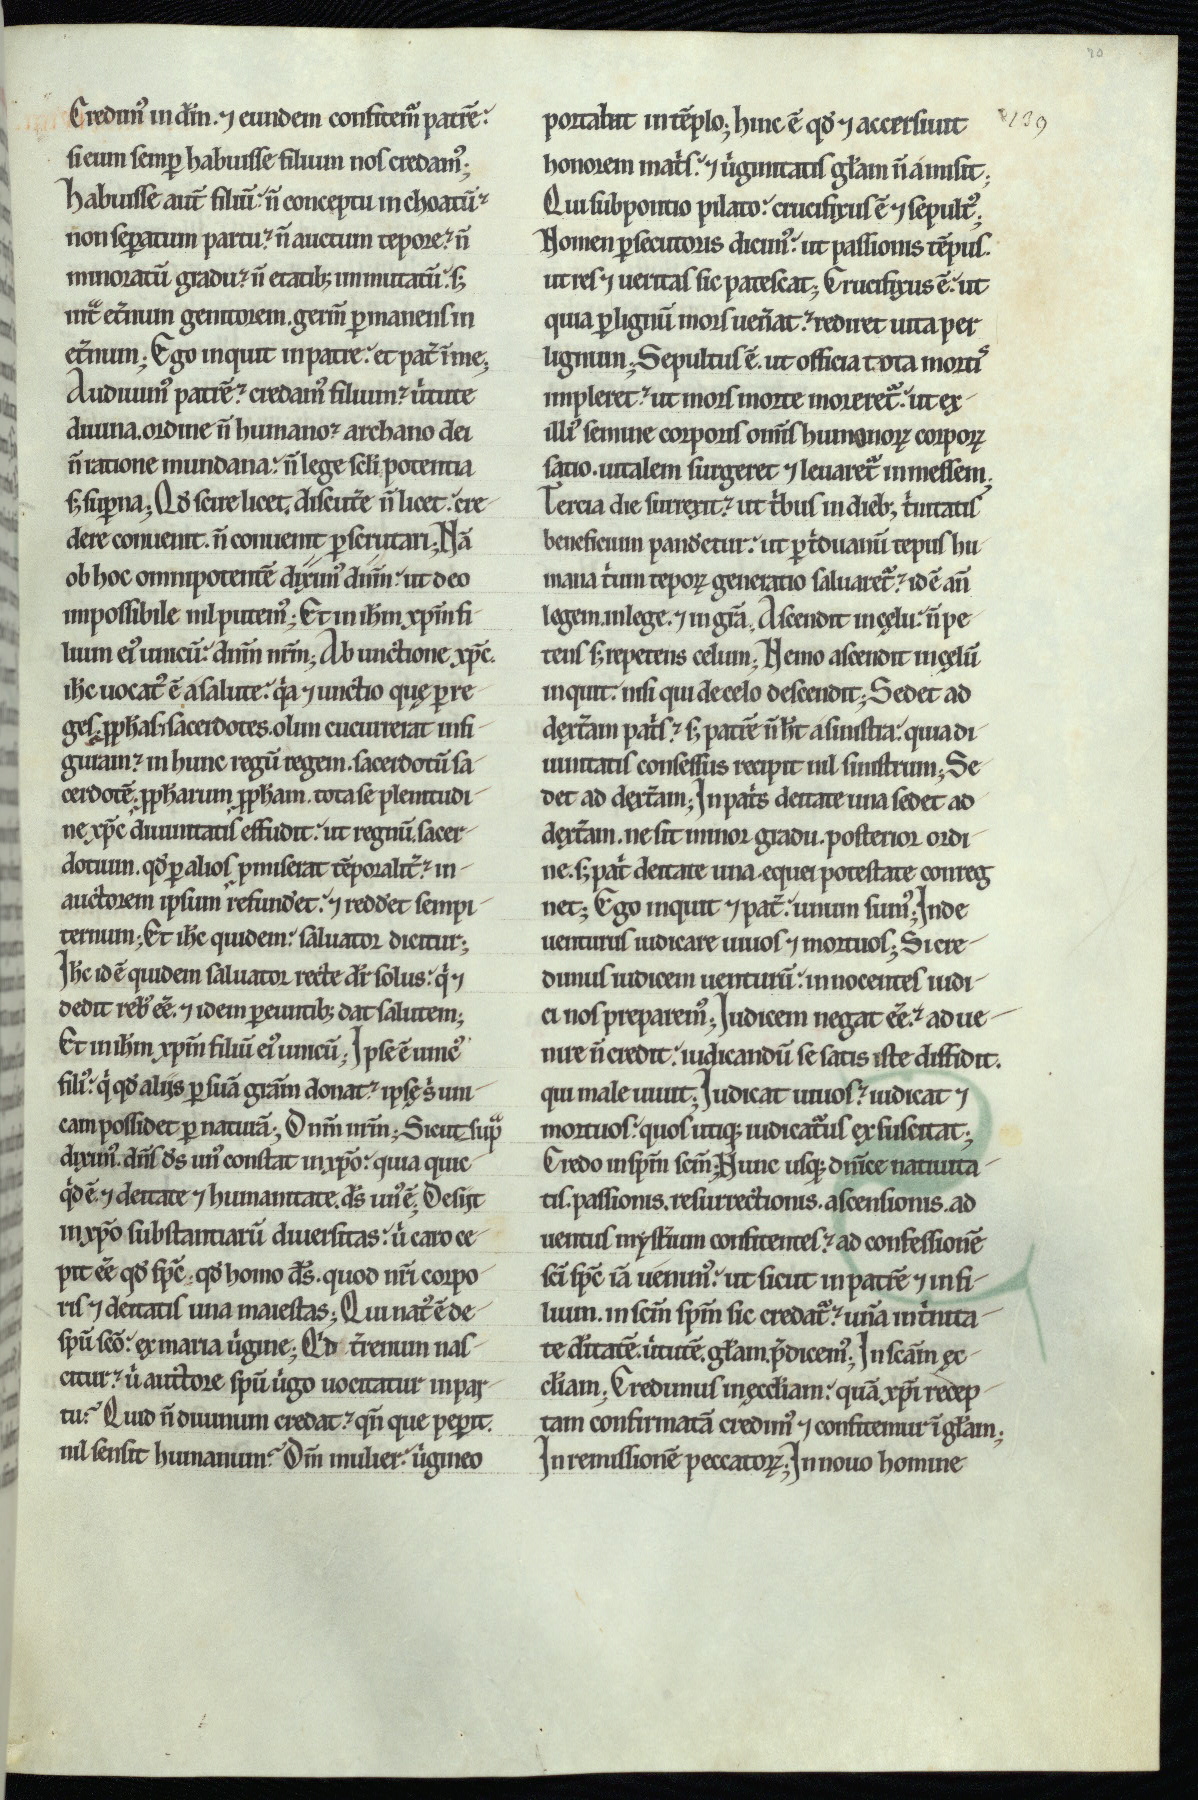 Credim᷒ in dm̄. ⁊ eundem confitem̃ patrē.
si eum semꝑ habuisse filium nos credam᷒;
habuisse aut̄ filiū. n̄ conceptu inchoatū.
non seꝑatum partu. n̄ auctum tēpore. n̄
minoratū gradu. n̄ etatib; inmutatū. s;
int̃ et̃num genitorem. germ̄ ꝑmanens in
et̃num; Ego inquit in patre. et pat̃ ī me;
Audiuim᷒ patrē. credam᷒ filium. ũtute
diuina. ordine n̄ humano. archano dei
n̄ ratione mundana. n̄ lege scl̄i potentia
s; suꝑna; Qđ scire licet, discut̃e n̄ licet. cre-
dere conuenit. n̄ conuenit ꝑscrutari; Nā
ob hoc omnipotentē dixim᷒ dm̄. ut deo
impossibile nil putem᷒; Et in ih̄m xp̄m fi-
lium ei᷒ unicū. dn̄m nr̄m; Ab unctione xp̄c.
ih̄c uocat᷒ ē a salute. q̇a ⁊ unctio quę ꝑ re-
ges. ꝓph̄as. sacerdotes. olim cucurrerat in fi-
guram. in hunc regū regem. sacerdotū sa-
cerdotē. ꝓph̄arum ꝓph̄am. tota se plenitudi-
ne xp̄c diuinitatis effudit. ut regnū. sacer-
dotium. qđ ꝑ alios p̄miserat tēporalit̃. in-
auctorem ipsum refunđet. ⁊ redđet sempi-
ternum; Et ih̄c quidem. saluator dicitur;
Ih̄c idē quidem saluator recte dr̄ solus. q̇ ⁊
dedit reb᷒ eē. ⁊ idem ꝑeuntib; dat salutem;
Et in ih̄m xp̄m filiū ei᷒ unicū; Ipse ē unic᷒
fili᷒. q̇ qđ aliis ꝑ suā gram̄ donat. ipse s̄ uni-
cam possidet ꝑ naturā; Dnm̄ nr̄m; Sicut sup̃
dixim᷒. dn̄s ds̄ un᷒ constat in xp̄o. quia quic-
q̇d ē ⁊ deitate ⁊ humanitate. ds̄ un᷒ ē; Desiit
in xp̄o substantiarū diuersitas. u̇ caro ce-
pit eē qđ sp̄c. qđ homo ds̄. quod nr̄i corpo-
ris ⁊ deitatis una maiestas; Qui nat᷒ ē de
spū scō. ex maria u̇gine; Q̇d t̃renum nas-
citur. u̇ auctore spū u̇go uocitatur in par-
tu. Quid n̄ diuinum credat. qn̄ que peꝑit.
nil sensit humanum. Om̄ mulier. u̇gineo
portabat in tēplo; hinc ē qđ ⁊ accersiuit
honorem mat̃s. ⁊ u̇ginitatis gl̄am n̄ amisit;
Qui sub pontio pilato. crucifixus ē ⁊ sepult᷒;
Nomen ꝑsecutoris dicim᷒. ut passionis tēpus.
ut res ⁊ ueritas sic patescat; Crucifixus ē. ut
quia ꝑ lignū mors uen̄at. rediret uita per
lignum; Sepultus ē. ut officia tota mortis
impleret. ut mors morte moreret̃. ut ex-
illi᷒ semine corporis om̄is humanoꝝ corpoꝝ
satio. uitalem surgeret ⁊ leuaret̃ in messem;
Tercia die surrexit. ut tb̄us in dieb; t̃initatis
beneficium panđetur. ut ꝑ t̃duanū tēpus hu
mana t̃ium tēpoꝝ generatio saluaret̃. id ē an̄
legem. in lege. ⁊ in gr̄a. Ascendit in cęlū. n̄ pe
tens s; repetens celum; Nemo ascendit in cęlū
inquit. nisi qui de celo descendit; Sedet ad
dext̃am pat̃s. s; patrē n̄ h̄t a sinistra. quia di-
uinitatis consessus recipit nil sinistrum; Se-
det ad dext̃am; In pat̃s deitate una sedet ad
dext̃am. ne sit minor gradu. posterior ordi-
ne. s; pat̃ deitate una. eque potestate conreg
net; Ego inquit ⁊ pat̃. unum sum᷒; Inde
uenturus iudicare uiuos ⁊ mortuos; Si cre-
dimus iudicem uenturū. innocentes iudi-
ci nos preparem᷒; Iudicem negat eē. ad ue-
nire n̄ credit. iudicandū se satis iste diffidit.
qui male uiuit; Iudicat uiuos. iudicat ⁊
mortuos. quos utiq; iudicat̃us ex suscitat;
Credo in spm̄ scm̄; Nunc usq; dn̄ice natiuita-
tis. passionis. resurrectionis. ascensionis. ad
uentus mystium confitentes. ad confessionē
sci sp̄c iā uenim᷒. ut sicut in patrē ⁊ in fi-
lium. in scm̄ spm̄ sic credat̃. unā in t̃inita-
te d̄itatē. u̇tutē. gl̄am. p̄dicem᷒; In scam̄ ęc-
cl̄iam; Credimus in ęccl̄iam. quā xp̄i recep-
tam confirmatā credim᷒ ⁊ confitemur ī gl̄am;
In remissionē peccatoꝝ; In nouo homine
139